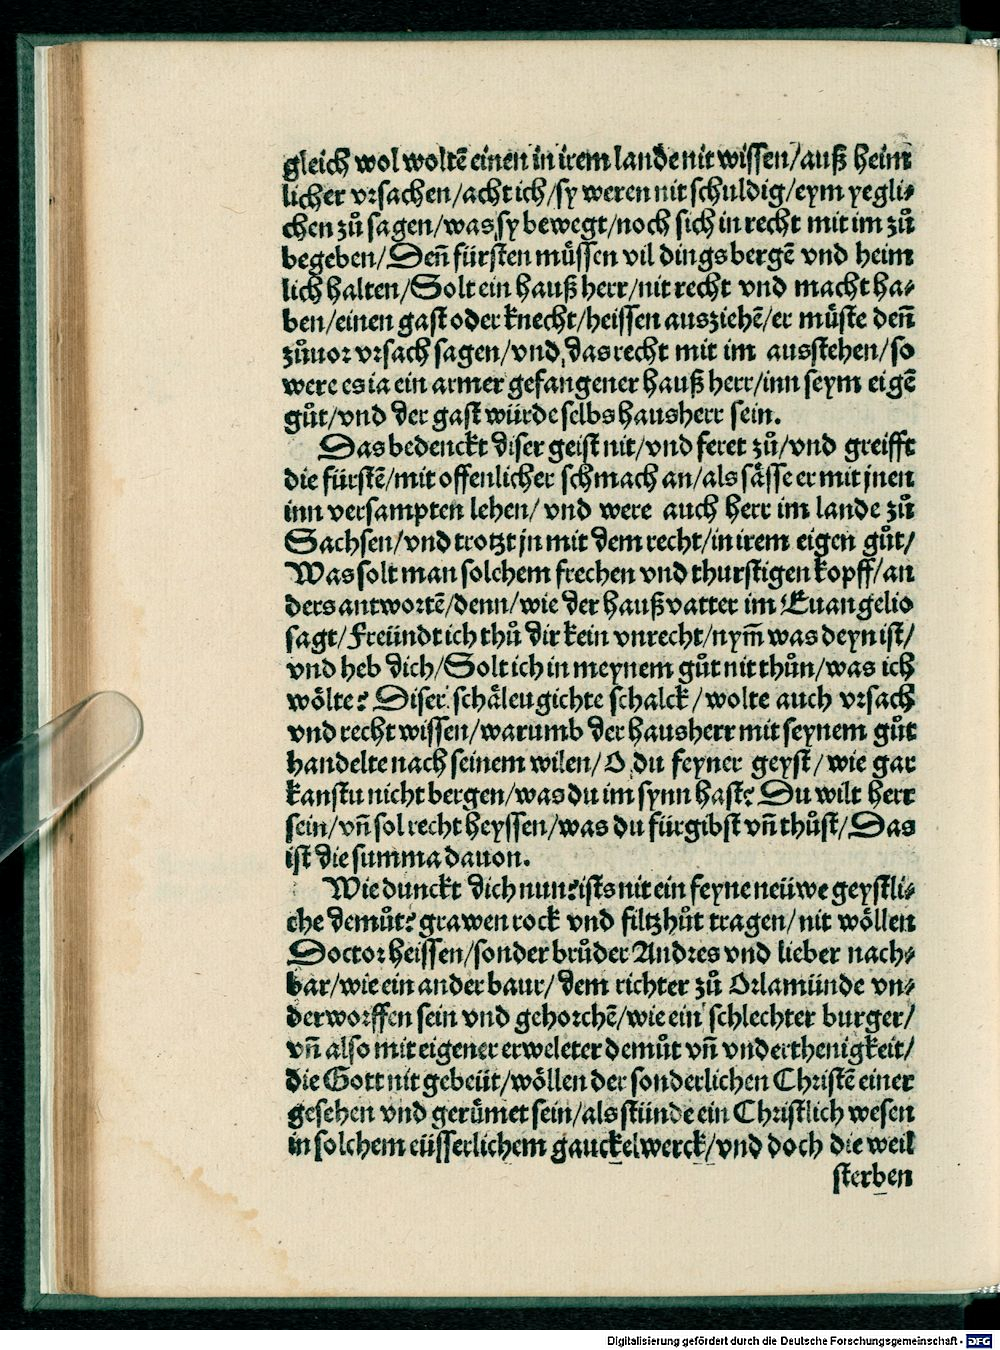 gleich wol woltē einen in irem lande nit wissen/auß heim
licher vrsachen/acht ich/sy weren nit schuldig/eym yegli⸗
chen zů sagen/was sy bewegt/noch sich in recht mit im zů
begeben/Deñ fürsten müssen vil dings bergē vnd heim
lich halten/Solt ein hauß herr/nit recht vnd macht ha⸗
ben/einen gast oder knecht/heissen ausziehē/er müste deñ
zůuor vrsach sagen/vnd das recht mit im ausstehen/so
were es ia ein armer gefangener hauß herr/inn seym eigē
gůt/vnd der gast würde selbs hausherr sein.
Das bedenckt diser geist nit/vnd feret zů/vnd greifft
die fürstē/mit offenlicher schmach an/als sässe er mit jnen
inn versampten lehen/vnd were auch herr im lande zů
Sachsen/vnd trotzt jn mit dem recht/in irem eigen gůt/
Was solt man solchem frechen vnd thurstigen kopff/an
ders antwortē/denn/wie der haußvatter im Euangelio
sagt/Freündt ich thů dir kein vnrecht/nym̄ was deyn ist/
vnd heb dich/Solt ich in meynem gůt nit thůn/was ich
wölte? Diser schäleugichte schalck/wolte auch vrsach
vnd recht wissen/warumb der hausherr mit seynem gůt
handelte nach seinem wilen/O du feyner geyst/wie gar
kanstu nicht bergen/was du im synn hast? Du wilt herr
sein/vñ sol recht heyssen/was du fürgibst vñ thůst/Das
ist die summa dauon.
Wie dunckt dich nun? ists nit ein feyne neüwe geystli⸗
che demůt? grawen rock vnd filtzhůt tragen/nit wöllen
Doctor heissen/sonder brůder Andres vnd lieber nach⸗
bar/wie ein ander baur/dem richter zů Orlamünde vn⸗
derworffen sein vnd gehorchē/wie ein schlechter burger/
vñ also mit eigener erweleter demůt vñ vnderthenigkeit/
die Gott nit gebeüt/wöllen der sonderlichen Christē einer
gesehen vnd gerümet sein/als stünde ein Christlich wesen
in solchem eüsserlichem gauckelwerck/vnd doch die weil
sterben
Digitalisierung gefördert durch die Deutsche Forschungsgemeinschaft - DFG